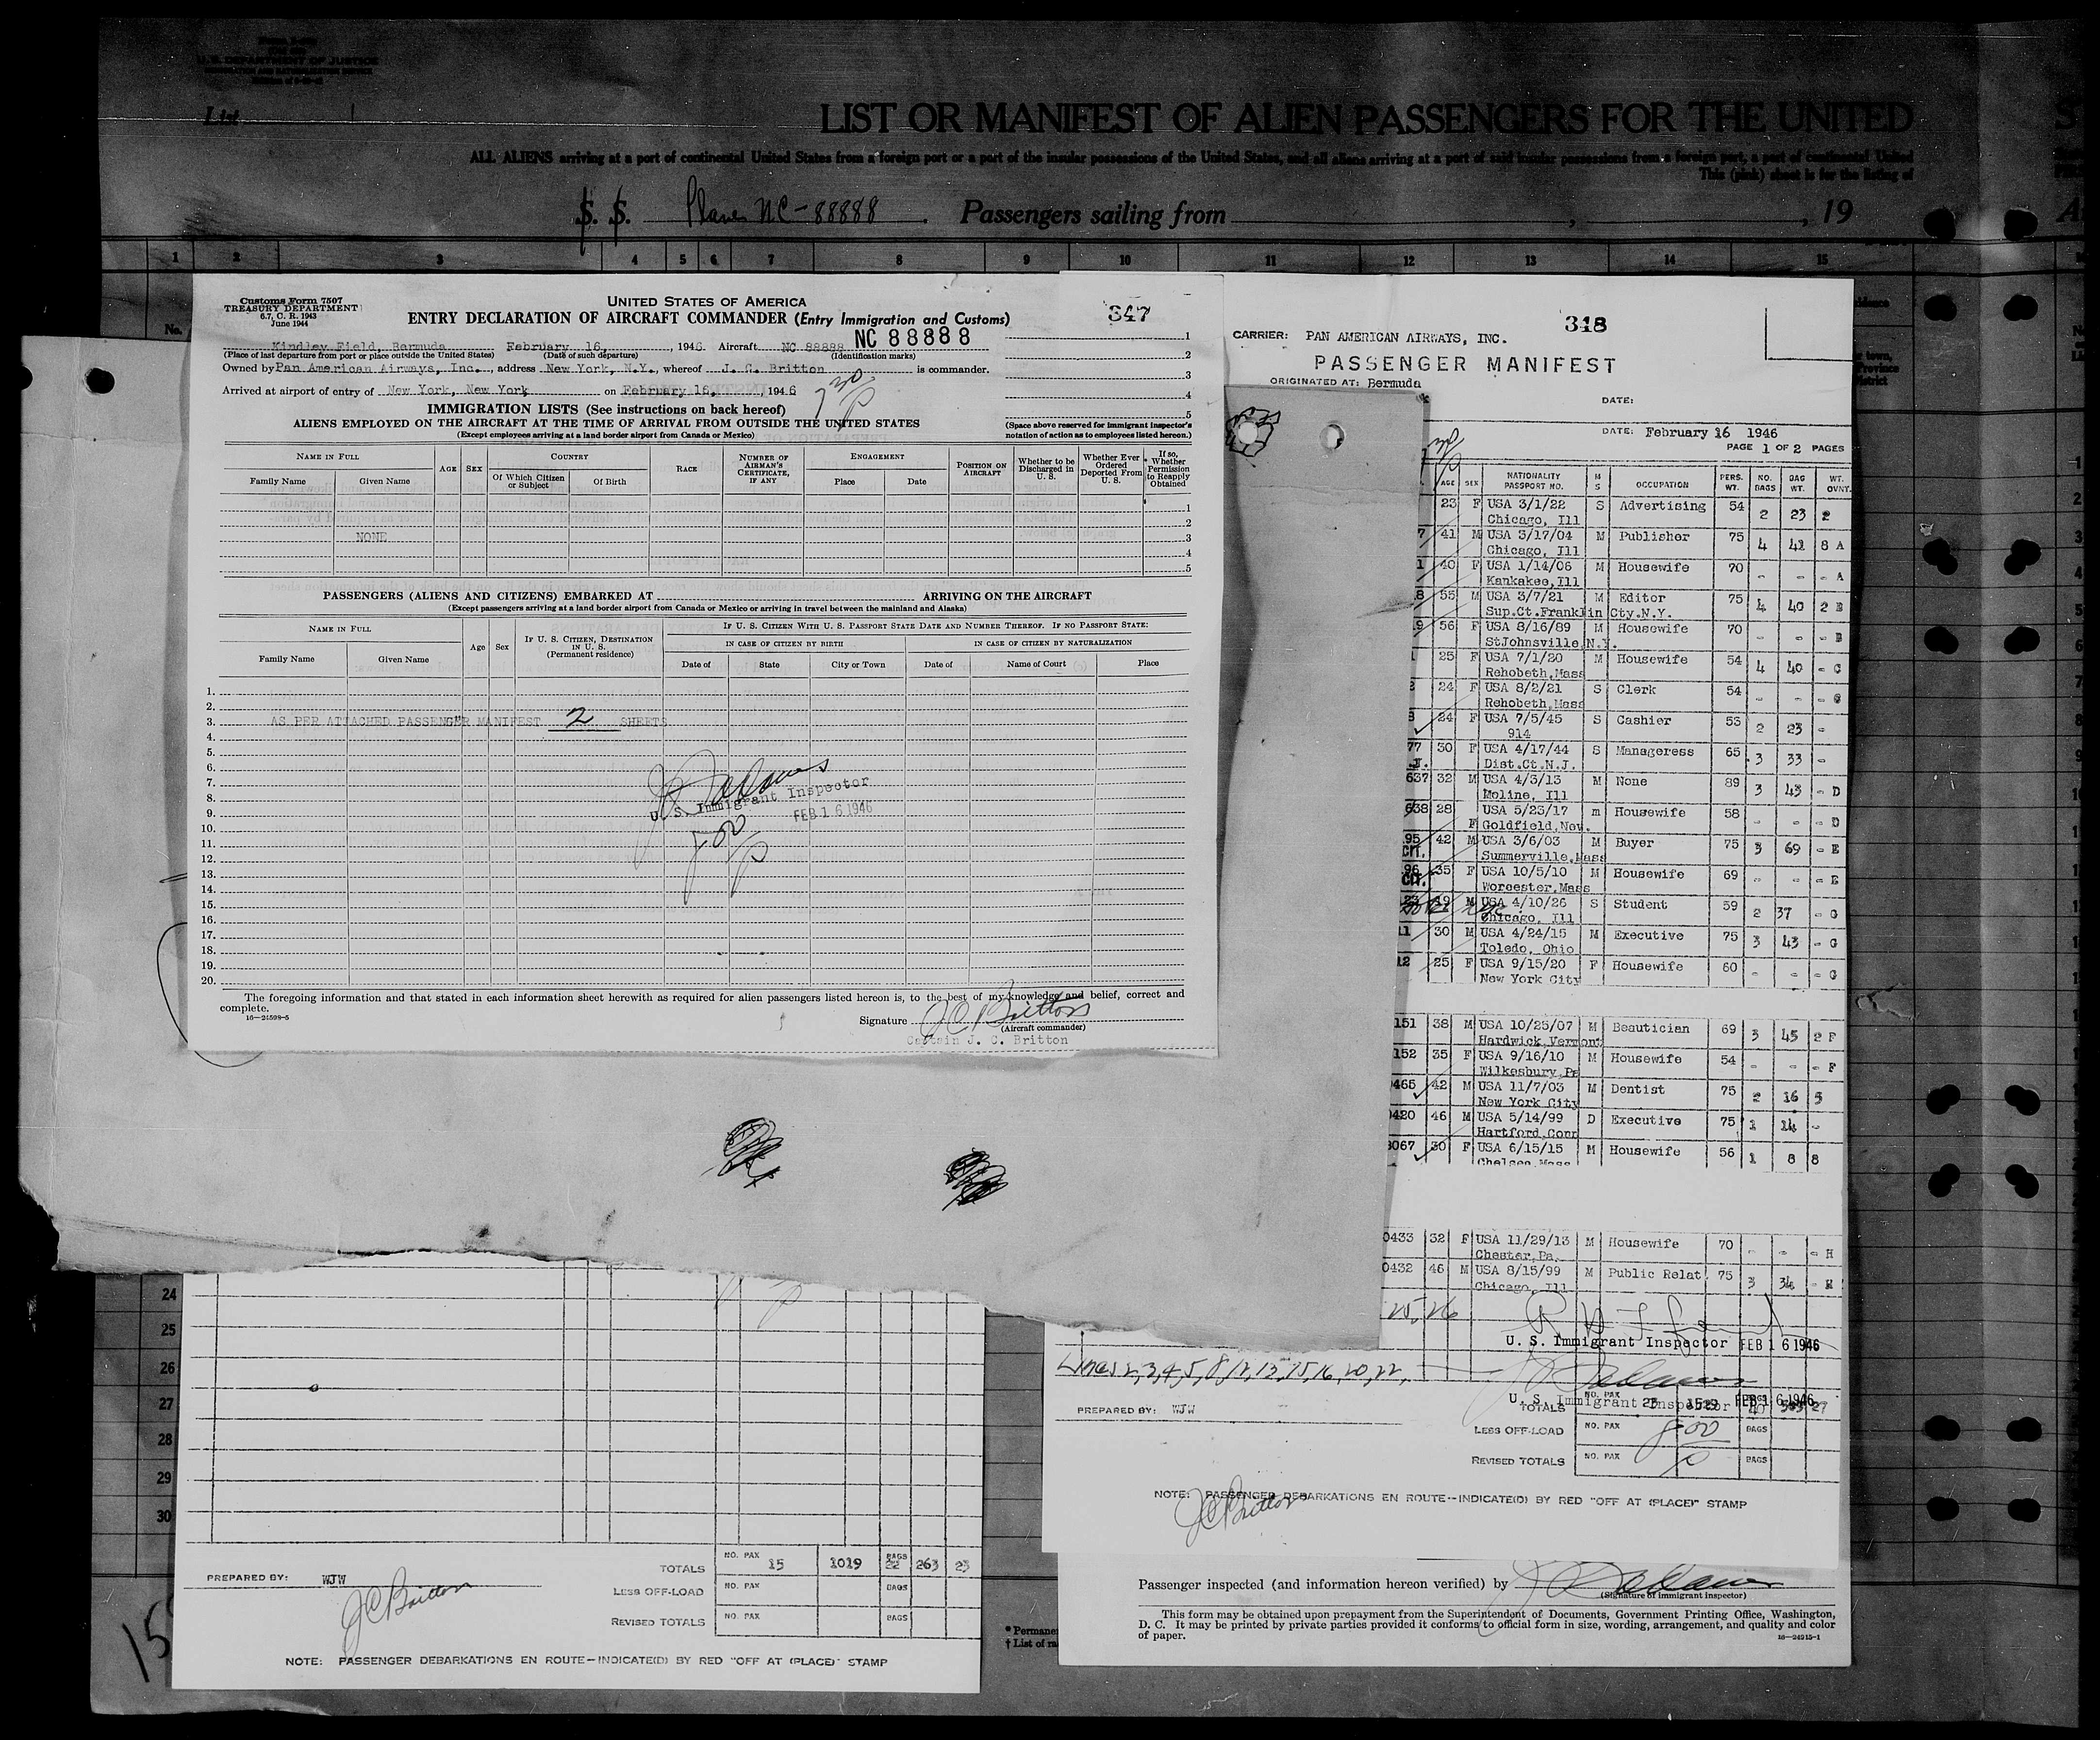 U.S. DEPARTMENT OF JUSTICE
List 1
LIST OR MANIFEST OF ALIEN PASSENGERS FOR THE UNITED
ALL ALIENS arriving at a port of continental United States from a foreign port or a part of the insular possessions of the United States, and all aliens arriving at a port of said insular possessions from a foreign port, a part of continental United
This (pink) sheet is for the listing of
S. S. Plane NC-88888 Passengers sailing from , , 19
1 2 3 4 5 6 7 8 9 10 11 12 13 14 15
No.
Customs Form 7507
TREASURY DEPARTMENT
6.7, C. R. 1943
June 1944
UNITED STATES OF AMERICA
ENTRY DECLARATION OF AIRCRAFT COMMANDER (Entry Immigration and Customs)
347
NC 88888
Kindley Field, Bermuda February 16, , 1946 Aircraft NC 88888
(Place of last departure from port or place outside the United States) (Date of such departure) (Identification marks)
Owned by Pan American Airways, Inc., address New York, N.Y., whereof J. C. Britton is commander.
Arrived at airport of entry of New York, New York on February 16, , 1946
7 30/P
1
2
3
4
5
IMMIGRATION LISTS (See instructions on back hereof)
ALIENS EMPLOYED ON THE AIRCRAFT AT THE TIME OF ARRIVAL FROM OUTSIDE THE UNITED STATES
(Except employees arriving at a land border airport from Canada or Mexico)
(Space above reserved for immigrant inspector's
notation of action as to employees listed hereon.)
NAME IN FULL
Family Name Given Name
AGE SEX
COUNTRY
Of Which Citizen or Subject Of Birth
RACE
NUMBER OF AIRMAN'S CERTIFICATE, IF ANY
ENGAGEMENT
Place Date
POSITION ON AIRCRAFT
Whether to be Discharged in U. S.
Whether Ever Ordered Deported From U. S.
If so, Whether Permission to Reapply Obtained
NONE
1
2
3
4
5
PASSENGERS (ALIENS AND CITIZENS) EMBARKED AT ARRIVING ON THE AIRCRAFT
(Except passengers arriving at a land border airport from Canada or Mexico or arriving in travel between the mainland and Alaska)
NAME IN FULL
Family Name Given Name
Age Sex
IF U. S. CITIZEN, DESTINATION IN U. S.
(Permanent residence)
IF U. S. CITIZEN WITH U. S. PASSPORT STATE DATE AND NUMBER THEREOF. IF NO PASSPORT STATE:
IN CASE OF CITIZEN BY BIRTH IN CASE OF CITIZEN BY NATURALIZATION
Date of State City or Town Date of Name of Court Place
1.
2.
3. AS PER ATTACHED PASSENGER MANIFEST 2 SHEETS
4.
5.
6.
7.
8.
9.
10.
11.
12.
13.
14.
15.
16.
17.
18.
19.
20.
U. S. Immigrant Inspector
FEB 16 1946
8 00/P
The foregoing information and that stated in each information sheet herewith as required for alien passengers listed hereon is, to the best of my knowledge and belief, correct and
complete.
16—24598-5
Signature J C Britton
(Aircraft commander)
Captain J. C. Britton
318
CARRIER: PAN AMERICAN AIRWAYS, INC.
PASSENGER MANIFEST
ORIGINATED AT: Bermuda
DATE:
DATE: February 16 1946
PAGE 1 OF 2 PAGES
AGE SEX NATIONALITY PASSPORT NO. M S OCCUPATION PERS. WT. NO. BAGS BAG WT. WT. OVNT.
23 F USA 3/1/22 S Advertising 54 2 23 2
Chicago, Ill
7 41 M USA 3/17/04 M Publisher 75 4 41 8 A
Chicago, Ill
1 40 F USA 1/14/06 M Housewife 70 - - - A
Kankakee, Ill
8 55 M USA 3/7/21 M Editor 75 4 40 2 B
Sup.Ct.Franklin Cty.N.Y.
9 56 F USA 8/16/89 M Housewife 70 - - - B
StJohnsville, N.Y.
1 25 F USA 7/1/20 M Housewife 54 4 40 - C
Rehobeth, Mass
2 24 F USA 8/2/21 S Clerk 54 - - - C
Rehobeth, Mass
3 24 F USA 7/5/45 S Cashier 53 2 23 -
914
77 30 F USA 4/17/44 S Manageress 65 3 33 -
J. Dist.Ct.N.J.
637 32 M USA 4/3/13 M None 89 3 43 - D
Moline, Ill
638 28 F USA 5/23/17 m Housewife 58 - - - D
Goldfield, Nev.
95 42 M USA 3/6/03 M Buyer 75 3 69 - E
CIT. Summerville, Mass
96 35 F USA 10/5/10 M Housewife 69 - - - E
CIT. Worcester, Mass
19 M USA 4/10/26 S Student 59 2 37 - G
Chicago, Ill
11 30 M USA 4/24/15 M Executive 75 3 43 - G
Toledo, Ohio
12 25 F USA 9/15/20 F Housewife 60 - - - G
New York City
151 38 M USA 10/25/07 M Beautician 69 3 45 2 F
Hardwick, Vermont
152 35 F USA 9/16/10 M Housewife 54 - - - F
Wilkesbury, Pa
0465 42 M USA 11/7/03 M Dentist 75 2 16 5
New York City
0420 46 M USA 5/14/99 D Executive 75 1 14 -
Hartford, Conn
8067 30 F USA 6/15/15 M Housewife 56 1 8 8
Chelsea, Mass
0433 32 F USA 11/29/13 M Housewife 70 - - - H
Chester, Pa.
0432 46 M USA 8/15/99 M Public Relat. 75 3 34 - H
Chicago, Ill
25, 26
U. S. Immigrant Inspector FEB 16 1946
Lines 2, 3, 4, 5, 8, 12, 13, 15, 16, 20, 22,
U. S. Immigrant Inspector FEB 16 1946
PREPARED BY: WJW
TOTALS NO. PAX 23 1529 BAGS 40 27
LESS OFF-LOAD NO. PAX BAGS
REVISED TOTALS NO. PAX BAGS
8 00/P
NOTE: PASSENGER DEBARKATIONS EN ROUTE—INDICATE(D) BY RED "OFF AT (PLACE)" STAMP
J C Britton
24
25
26
27
28
29
30
PREPARED BY: WJW
J C Britton
TOTALS NO. PAX 15 1019 BAGS 22 263 23
LESS OFF-LOAD NO. PAX BAGS
REVISED TOTALS NO. PAX BAGS
NOTE: PASSENGER DEBARKATIONS EN ROUTE—INDICATE(D) BY RED "OFF AT (PLACE)" STAMP
* Permane
† List of ra
Passenger inspected (and information hereon verified) by
(Signature of immigrant inspector)
This form may be obtained upon prepayment from the Superintendent of Documents, Government Printing Office, Washington,
D. C. It may be printed by private parties provided it conforms to official form in size, wording, arrangement, and quality and color
of paper.
16—24915-1